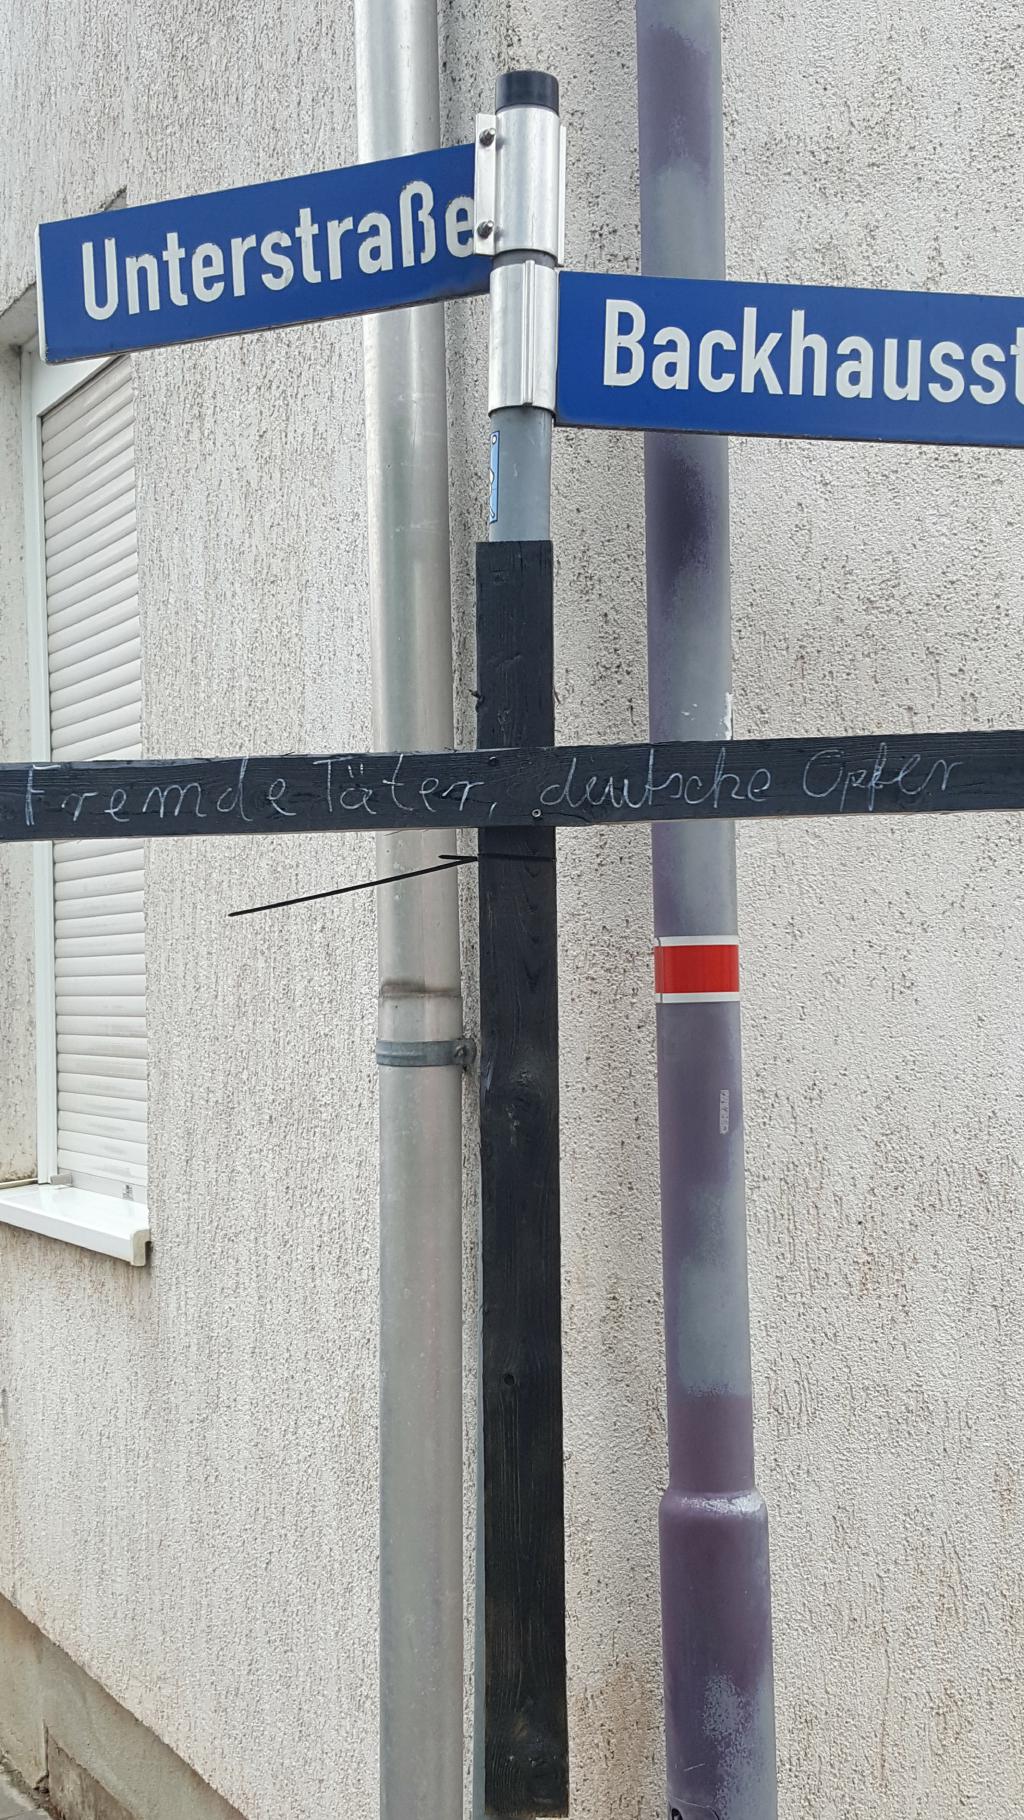 Unterstraße
Backhausst
Fremde Täter, deutsche Opfer